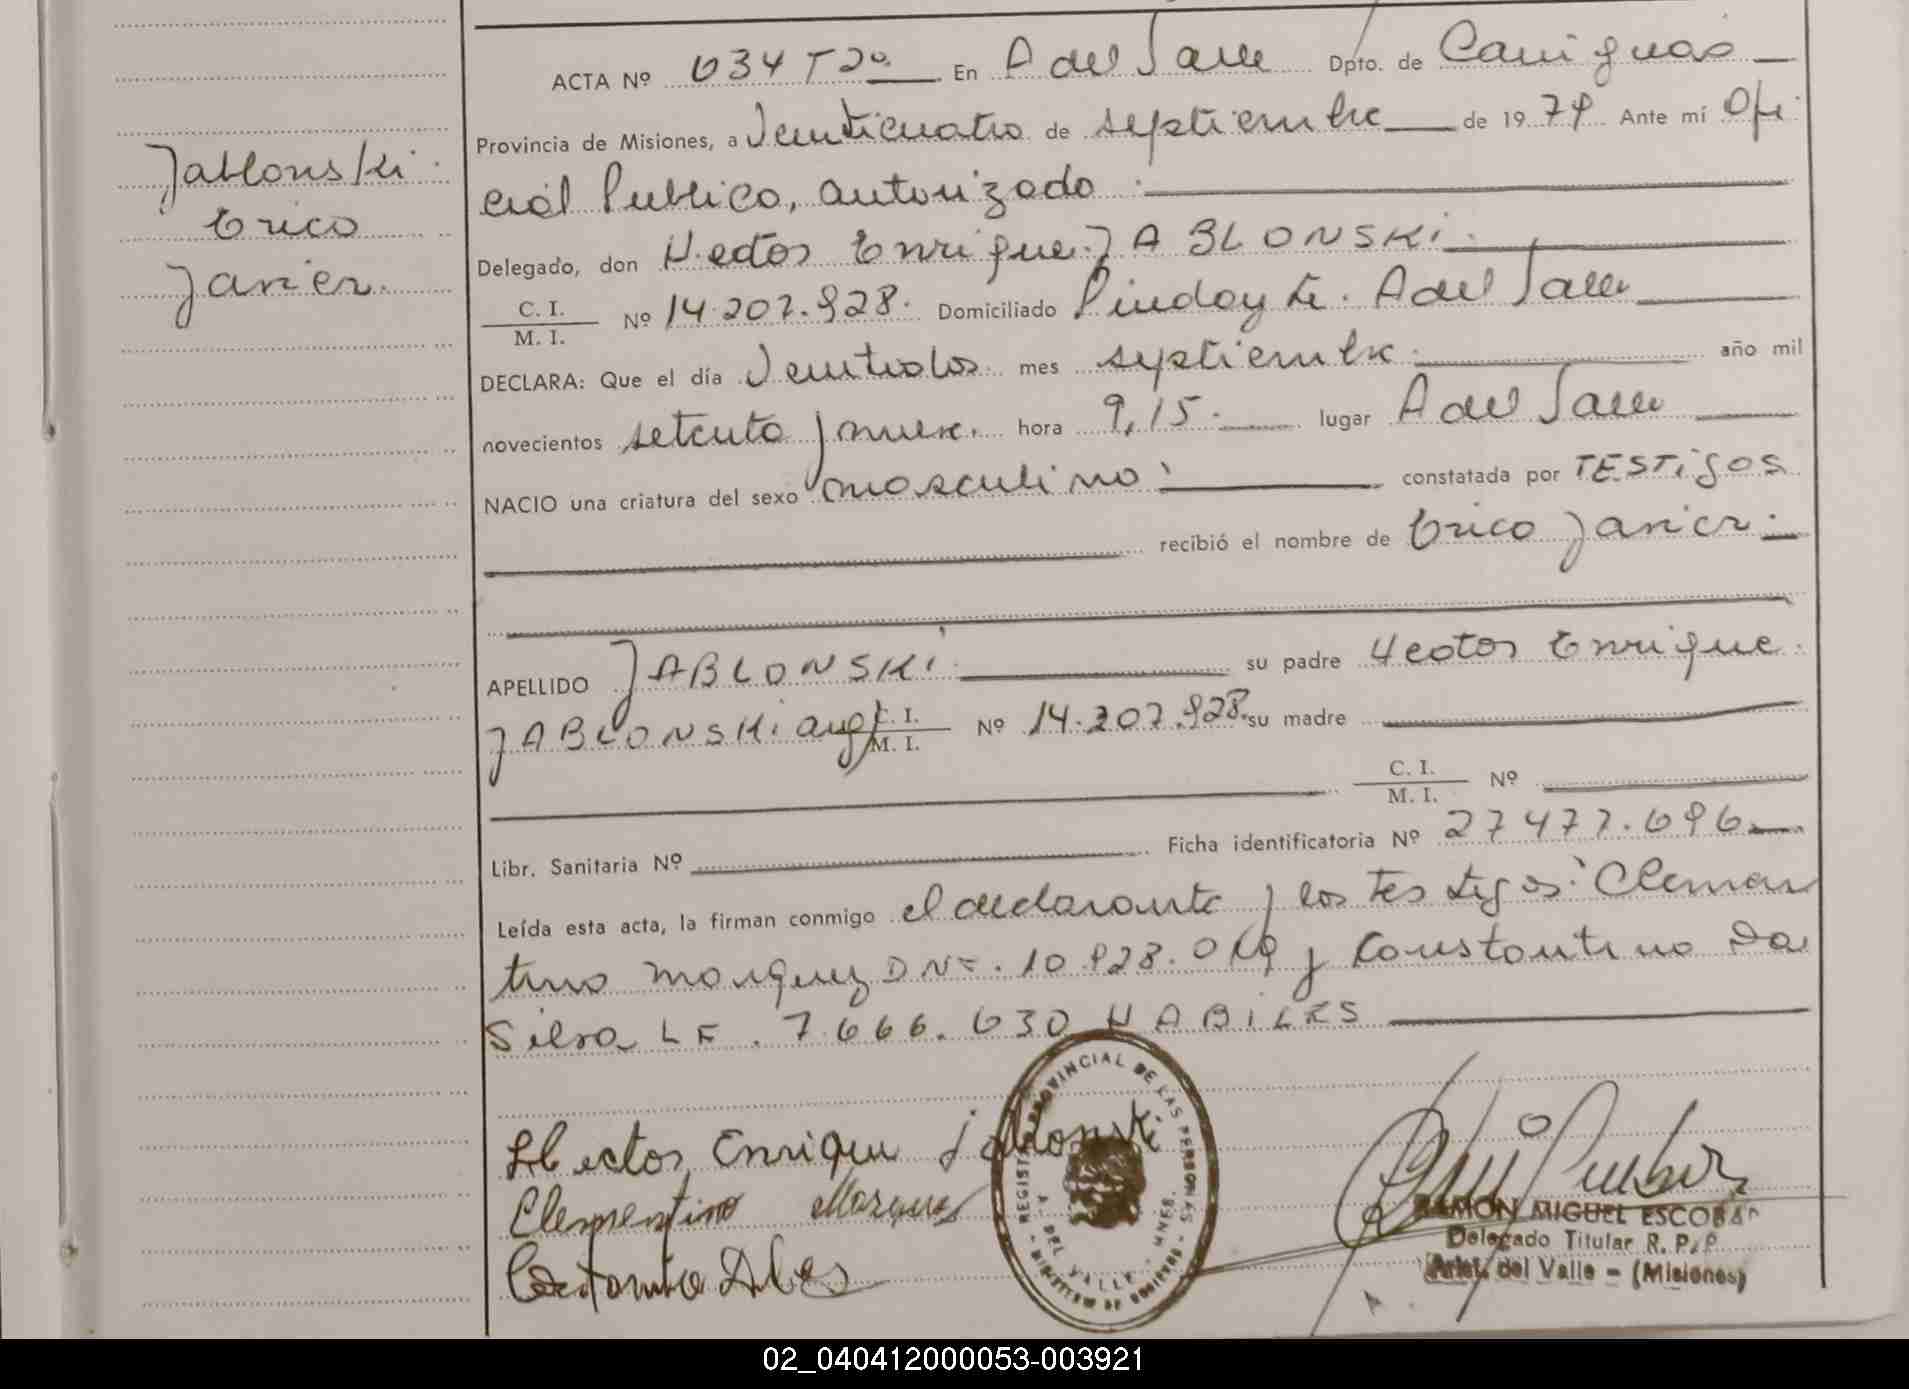 Jablonski
Erico
Javier
ACTA Nº 034 Tº En A del Valle Dpto. de Cainguás
Provincia de Misiones, a Veinticuatro de septiembre de 1979 Ante mí Ofi
cial Publico, autorizado
Delegado, don Hector Enrique JABLONSKi
C. I. / M. I. Nº 14.207.928. Domiciliado Pindaytí. A del Valle
DECLARA: Que el día Ventidos mes septiembre año mil
novecientos setenta y nueve. hora 9,15. lugar A del Valle
NACIO una criatura del sexo masculino constatada por TESTiGOS
recibió el nombre de Erico Javier
APELLIDO JABLONSKi su padre Hector Enrique
JABLONSKi arg/ C. I. / M. I. Nº 14.207.928. su madre
C. I. / M. I. Nº
Libr. Sanitaria Nº Ficha identificatoria Nº 27477.696
Leída esta acta, la firman conmigo el declarante y los Testigos: Clemen
tino Marquez DN=. 10.928.019 y Constantino Da
Silva LE. 7.666.630 HABiLES
Hector Enrique Jablonski
Clementino Marquez
REGISTRO PROVINCIAL DE LAS PERSONAS
A. DEL VALLE - MNES.
MINISTERIO DE GOBIERNO
RAMON MIGUEL ESCOBAR
Delegado Titular R. P. P.
Arist. del Valle - (Misiones)
02_040412000053-003921